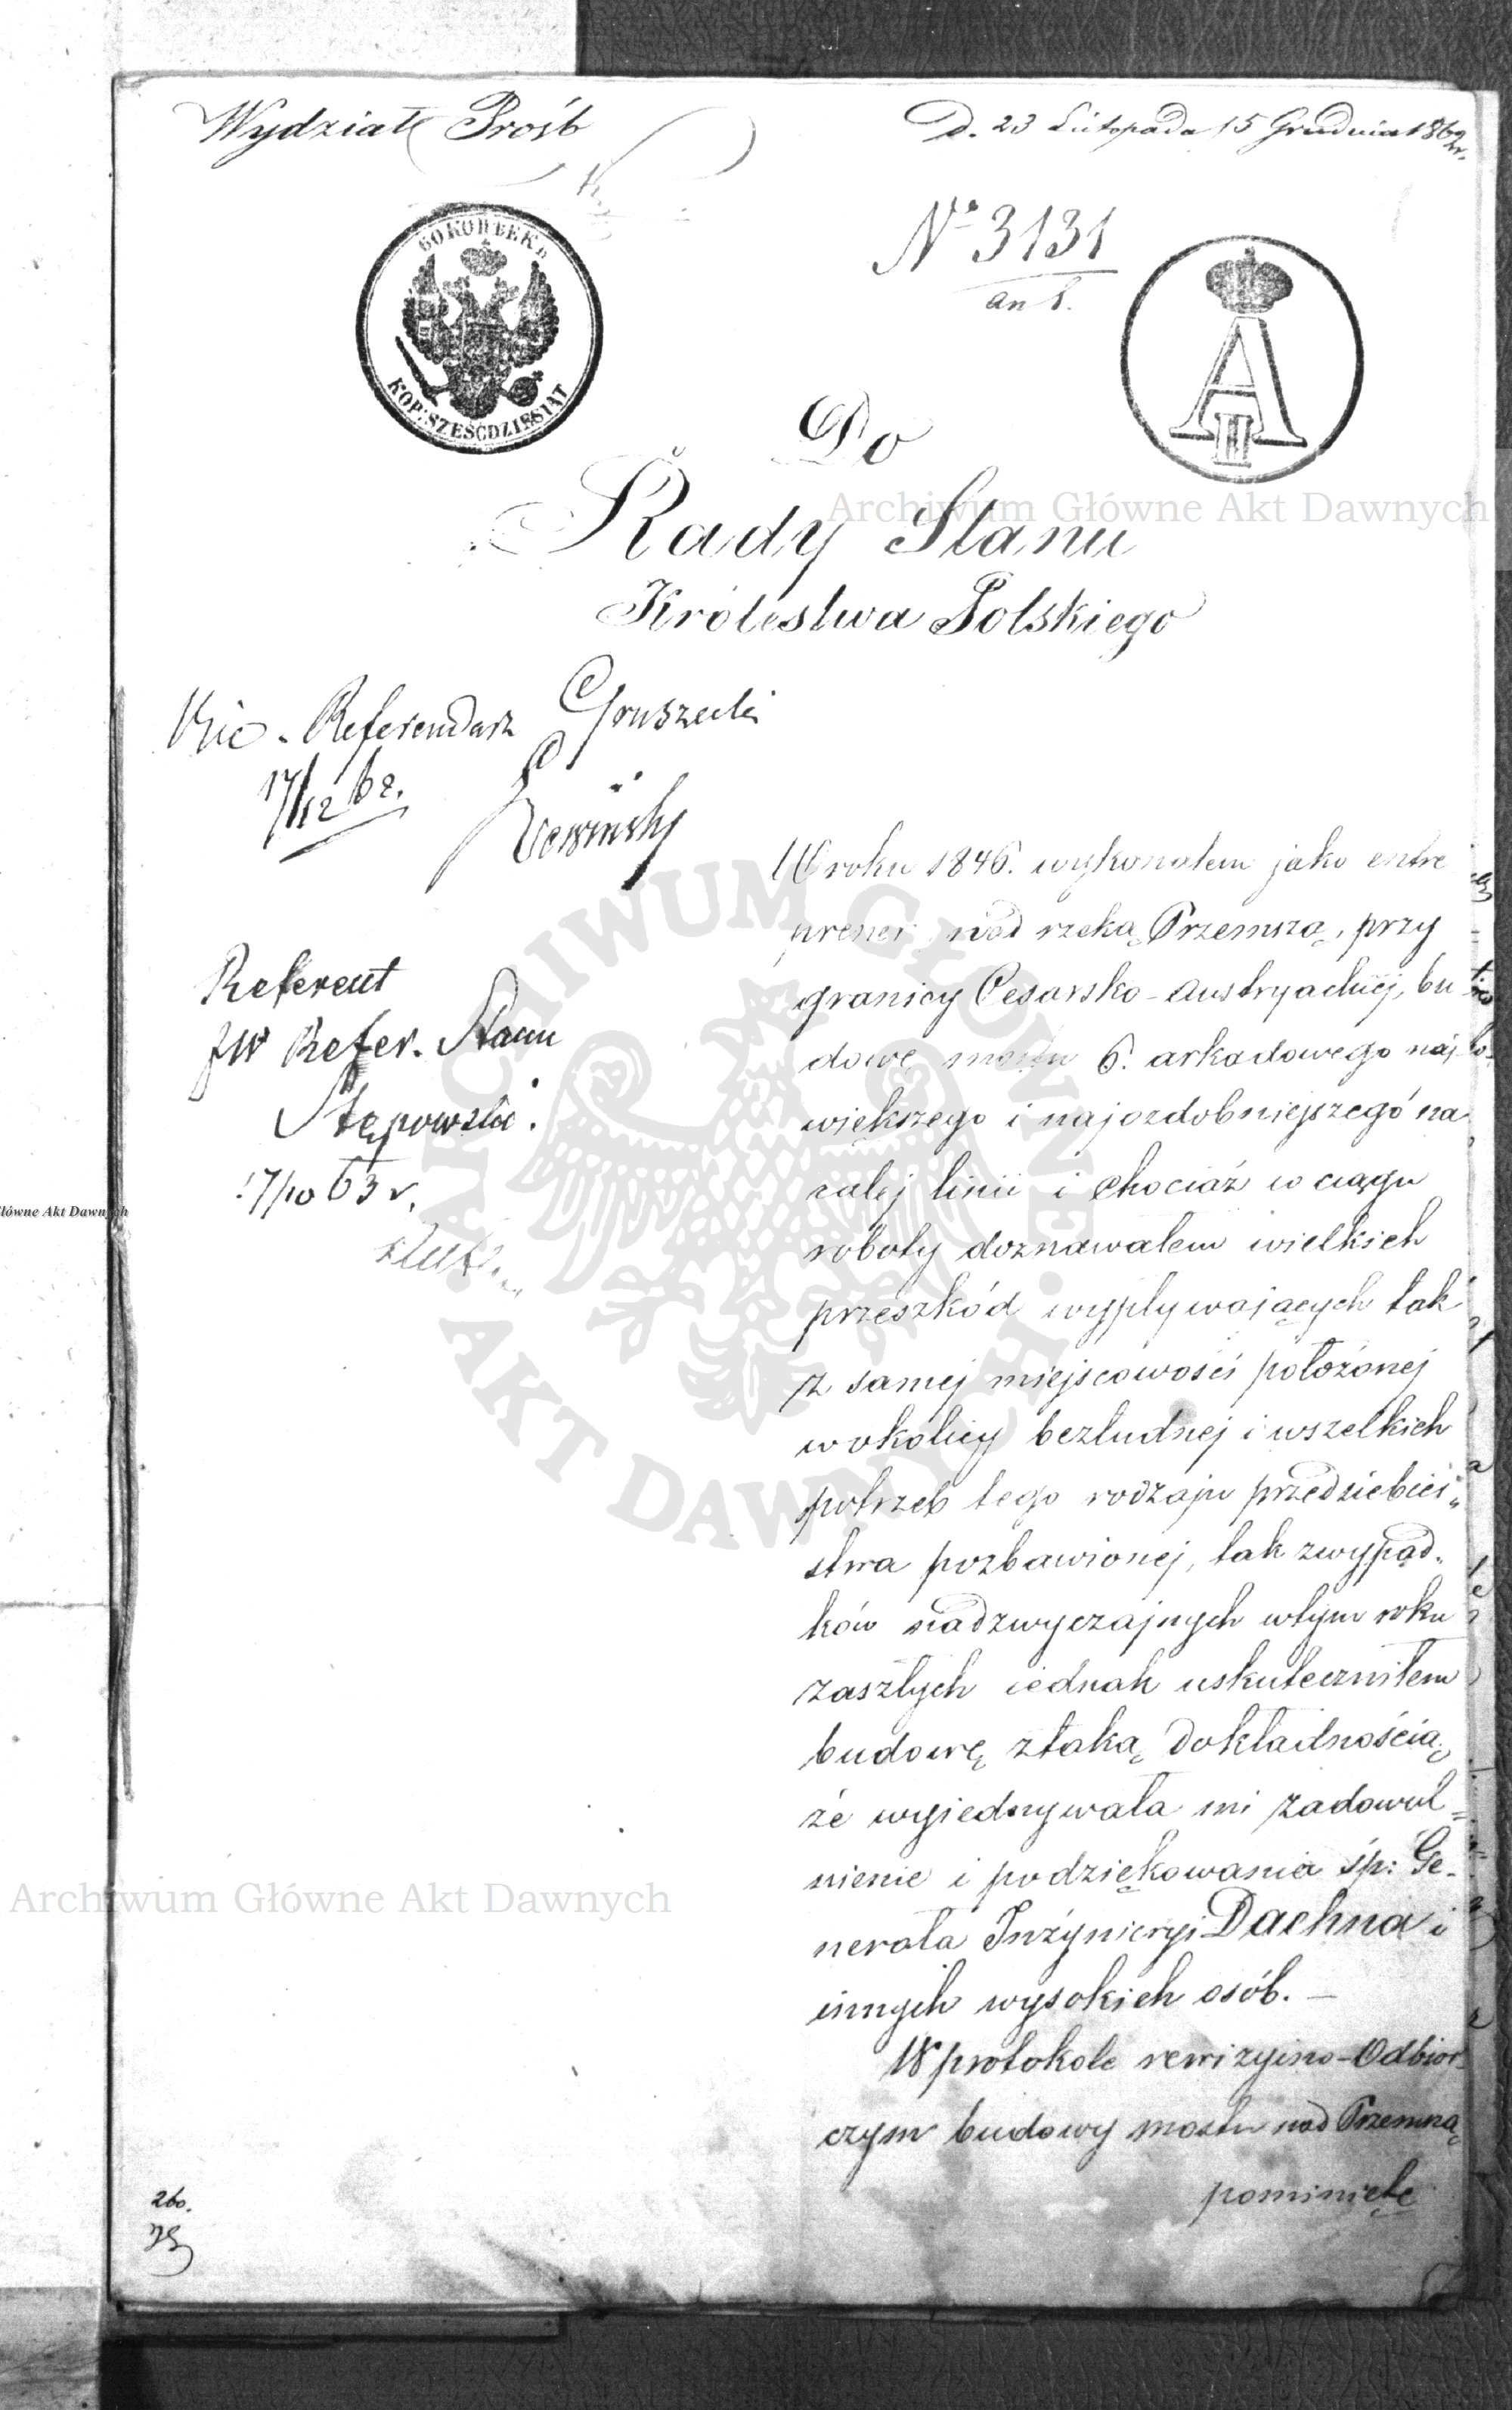 Wydział Prośb
D. 23 Listopada 15 Grudnia 1862 r.
No 3131
60 КОПѢЕКЪ
KOP: SZEŚĆDZIESIĄT
A II
Do
Rady Stanu
Królestwa Polskiego
Vice-Referendarz Gruszecki
17/12 62.
Referent
JW Refer. Stanu
Stępowski.
17/10 63 r.
W roku 1846. wykonałem jako entre
prener nad rzeką Przemszą, przy
granicy Cesarsko-Austryackiej, bu
dowę mostu 6. arkadowego naj
większego i najozdobniejszego na
całej linii i chociaż w ciągu
roboty doznawałem wielkich
przeszkód wypływających tak
z samej miejscowości położonej
w okolicy bezludnej i wszelkich
potrzeb tego rodzaju przedsiębier„
stwa pozbawionej, tak z wypad„
ków nadzwyczajnych w tym roku
zaszłych iednak uskuteczniłem
budowę z taką dokładnością,
że wyiednywała mi zadowol=
nienie i podziękowania śp: Ge„
nerała Inżynieryi Daehna i
innych wysokich osób. —
W protokole rewizyino-Odbior
czym budowy mostu nad Przemszą
pominięte
260.
Archiwum Główne Akt Dawnych
ARCHIWUM GŁÓWNE AKT DAWNYCH
główne Akt Dawnych
Archiwum Główne Akt Dawnych